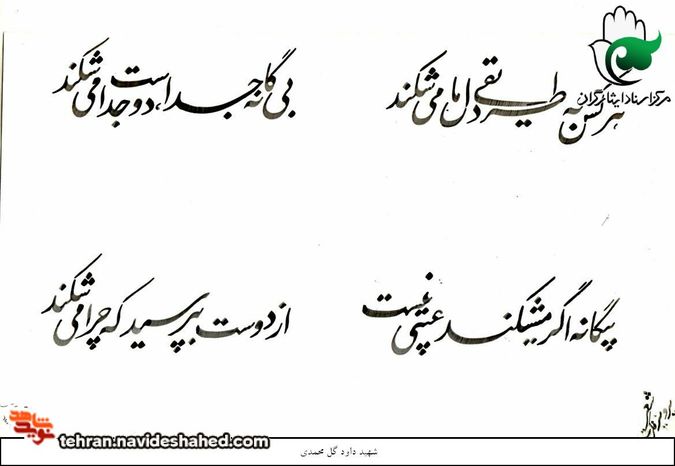 مرکز اسناد ایثارگران
هر کس به طریقی دل ما می شکند
بی گانه جدا دوست جدا می شکند
بیگانه اگر میشکند عیبی نیست
از دوست بپرسید که چرا می شکند
نوید شاهد
tehran.navideshahed.com
شهید داود گل محمدی